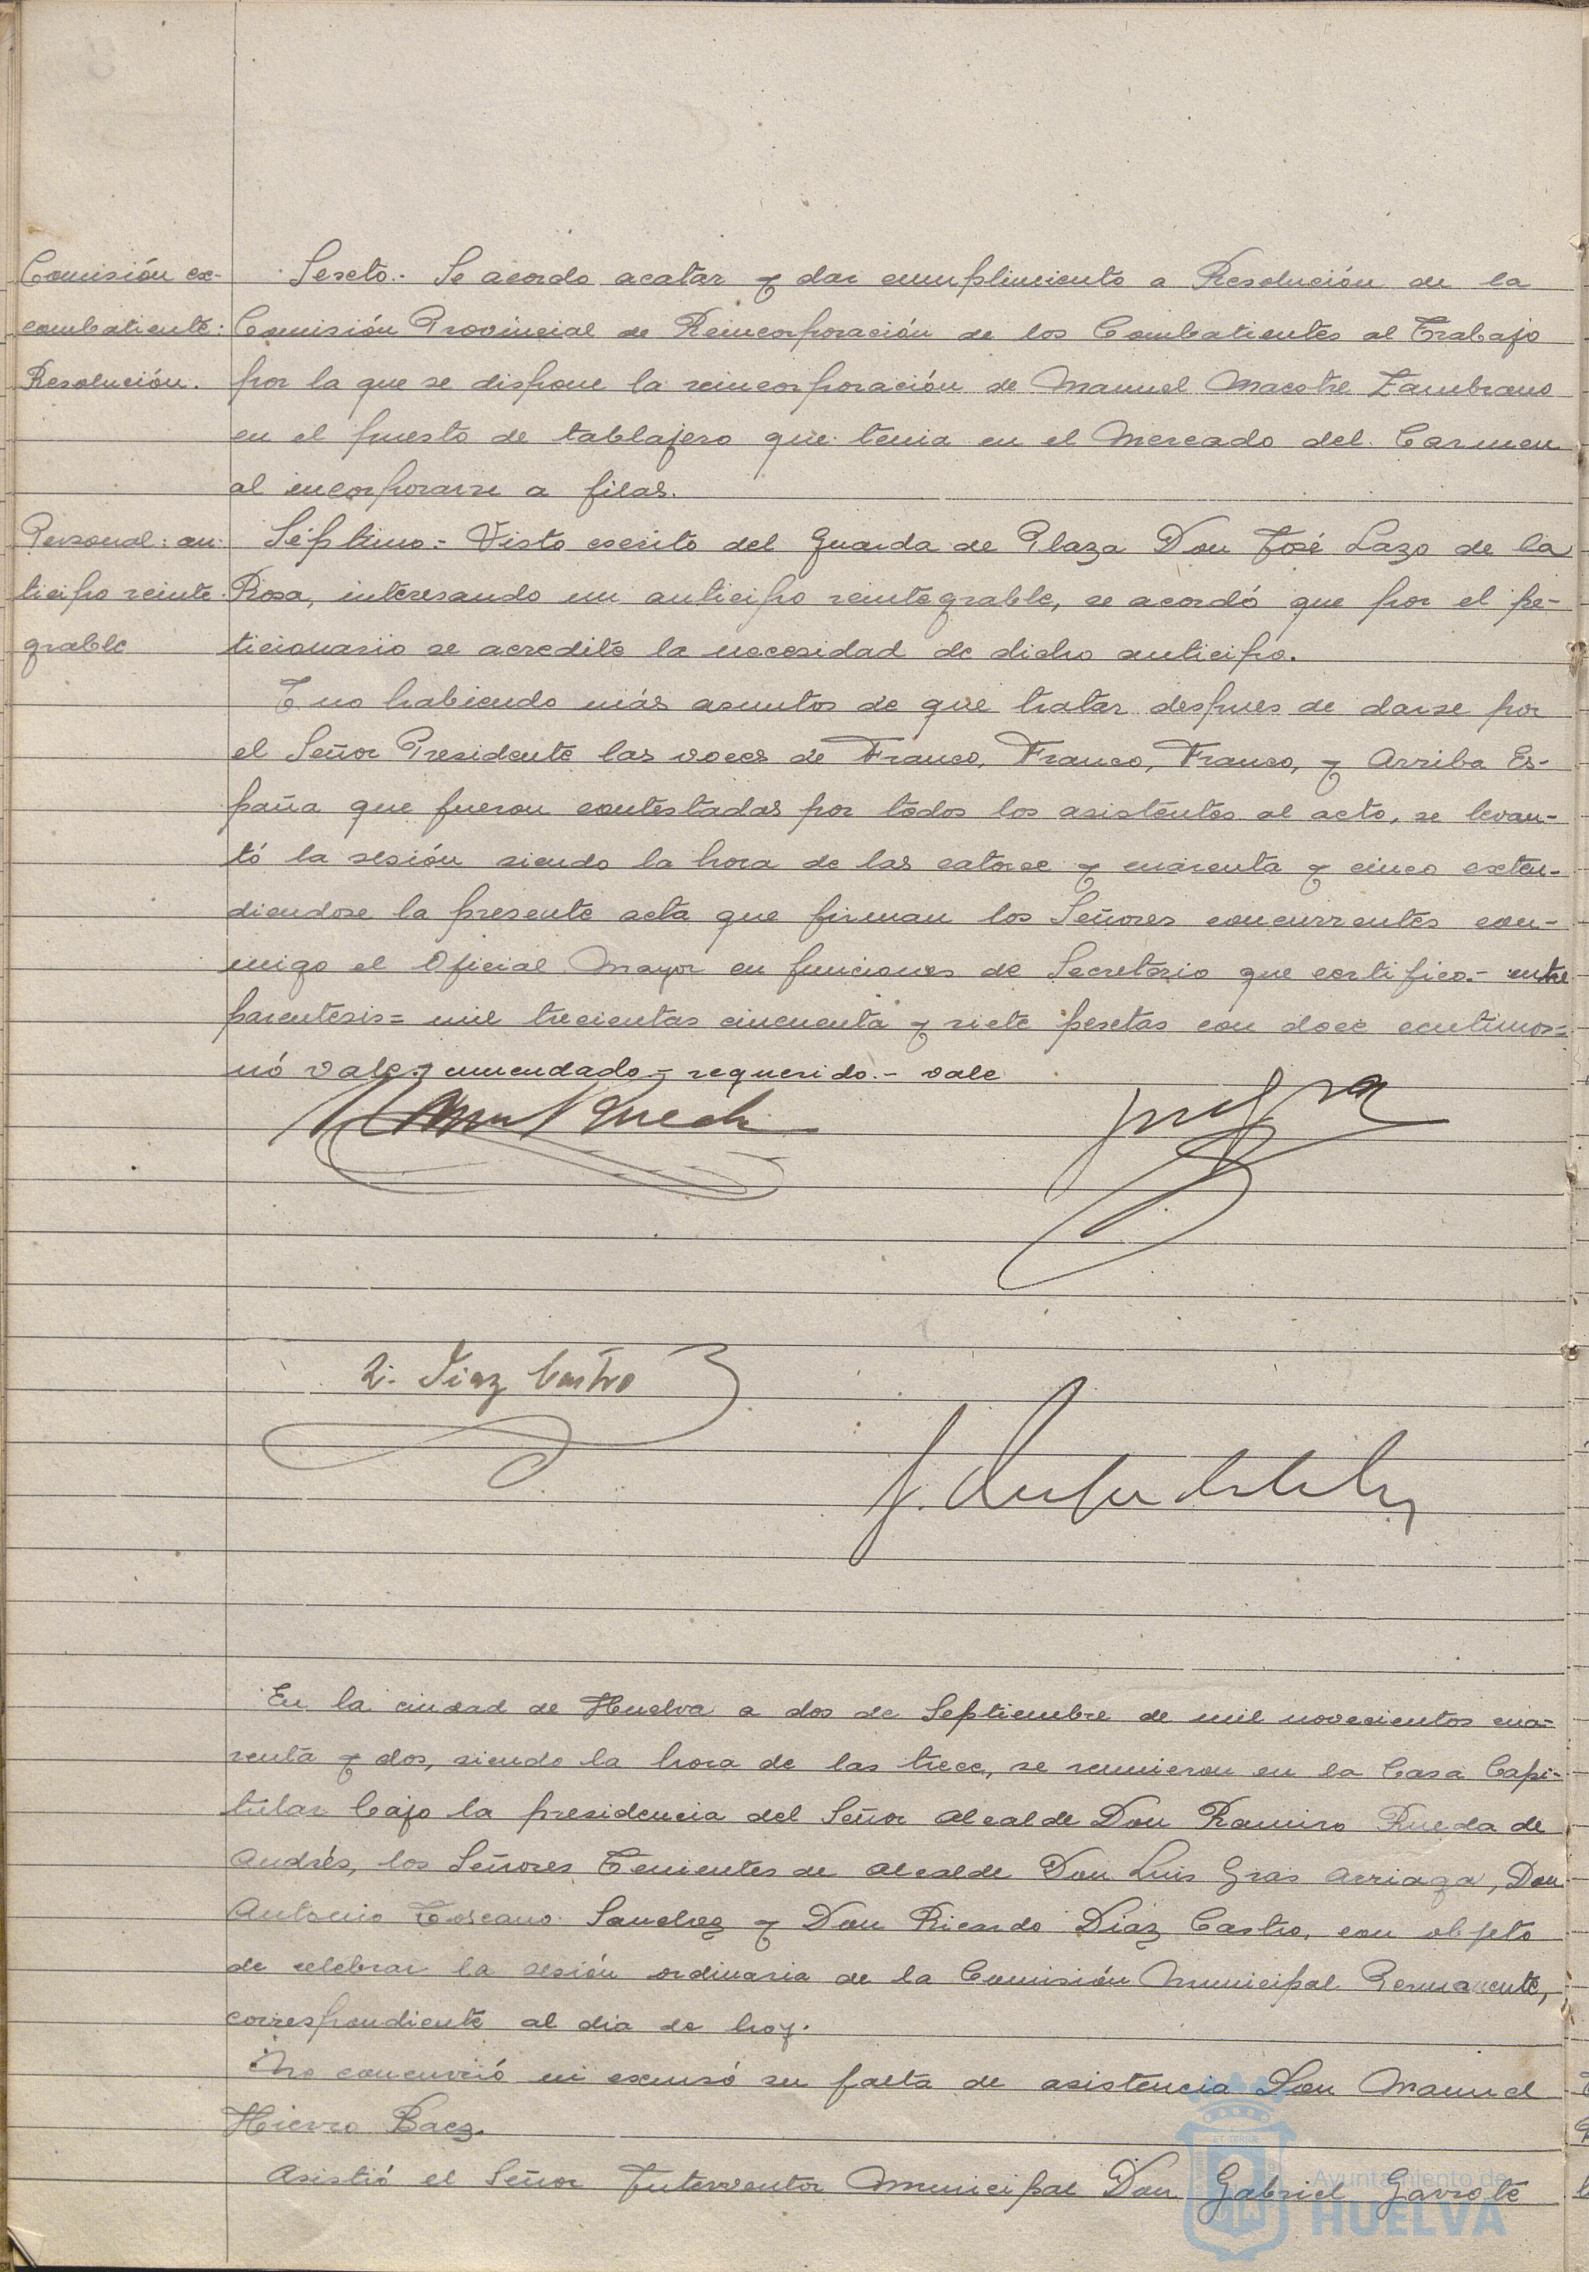 Comisión ex-
combatiente:
Resolución.
Sexto.- Se acordo acatar y dar cumplimiento a Resolución de la
Comisión Provincial de Reincorporación de los Combatientes al Trabajo
por la que se dispone la reincorporación de Manuel Macotre Zambrano
en el puesto de tablajero que tenia en el Mercado del Carmen
al incorporarse a filas.
Personal: an-
ticipo reinte-
grable
Séptimo.- Visto escrito del Guarda de Plaza Don José Lazo de la
Rosa, interesando un anticipo reintegrable, se acordó que por el pe-
ticionario se acredite la necesidad de dicho anticipo.
Y no habiendo más asuntos de que tratar despues de darse por
el Señor Presidente las voces de Franco, Franco, Franco, y Arriba Es-
paña que fueron contestadas por todos los asistentes al acto, se levan-
tó la sesión siendo la hora de las catorce y cuarenta y cinco exten-
diendose la presente acta que firman los Señores concurrentes con-
migo el Oficial Mayor en funciones de Secretario que certifico.- entre
parentesis= mil trecientas cincuenta y siete pesetas con doce centimos=
nó vale.- enmendado - requerido.- vale
R. Diaz Castro
En la ciudad de Huelva a dos de Septiembre de mil novecientos cua-
renta y dos, siendo la hora de las trece, se reunieron en la Casa Capi-
tular bajo la presidencia del Señor Alcalde Don Ramiro Rueda de
Andrés, los Señores Tenientes de Alcalde Don Luis Gras Arriaga, Don
Antonio Toscano Sanchez y Don Ricardo Diaz Castro, con objeto
de celebrar la sesión ordinaria de la Comisión Municipal Permanente,
correspondiente al dia de hoy.
No concurrió ni excusó su falta de asistencia Don Manuel
Hierro Baez.
Asistió el Señor Interventor Municipal Don Gabriel Garrote
Ayuntamiento de
HUELVA